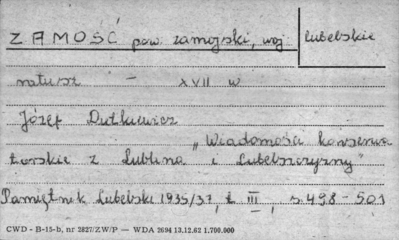 ZAMOŚĆ pow. zamojski, woj. lubelskie
ratusz - XVII w
Józef Dutkiewicz
"Wiadomości konserwa
torskie z Lublina i Lubelszczyzny"
Pamiętnik Lubelski 1935/37, t. III, s. 498-501
CWD - B-15-b, nr 2827/ZW/P — WDA 2694 13.12.62 1.700.000